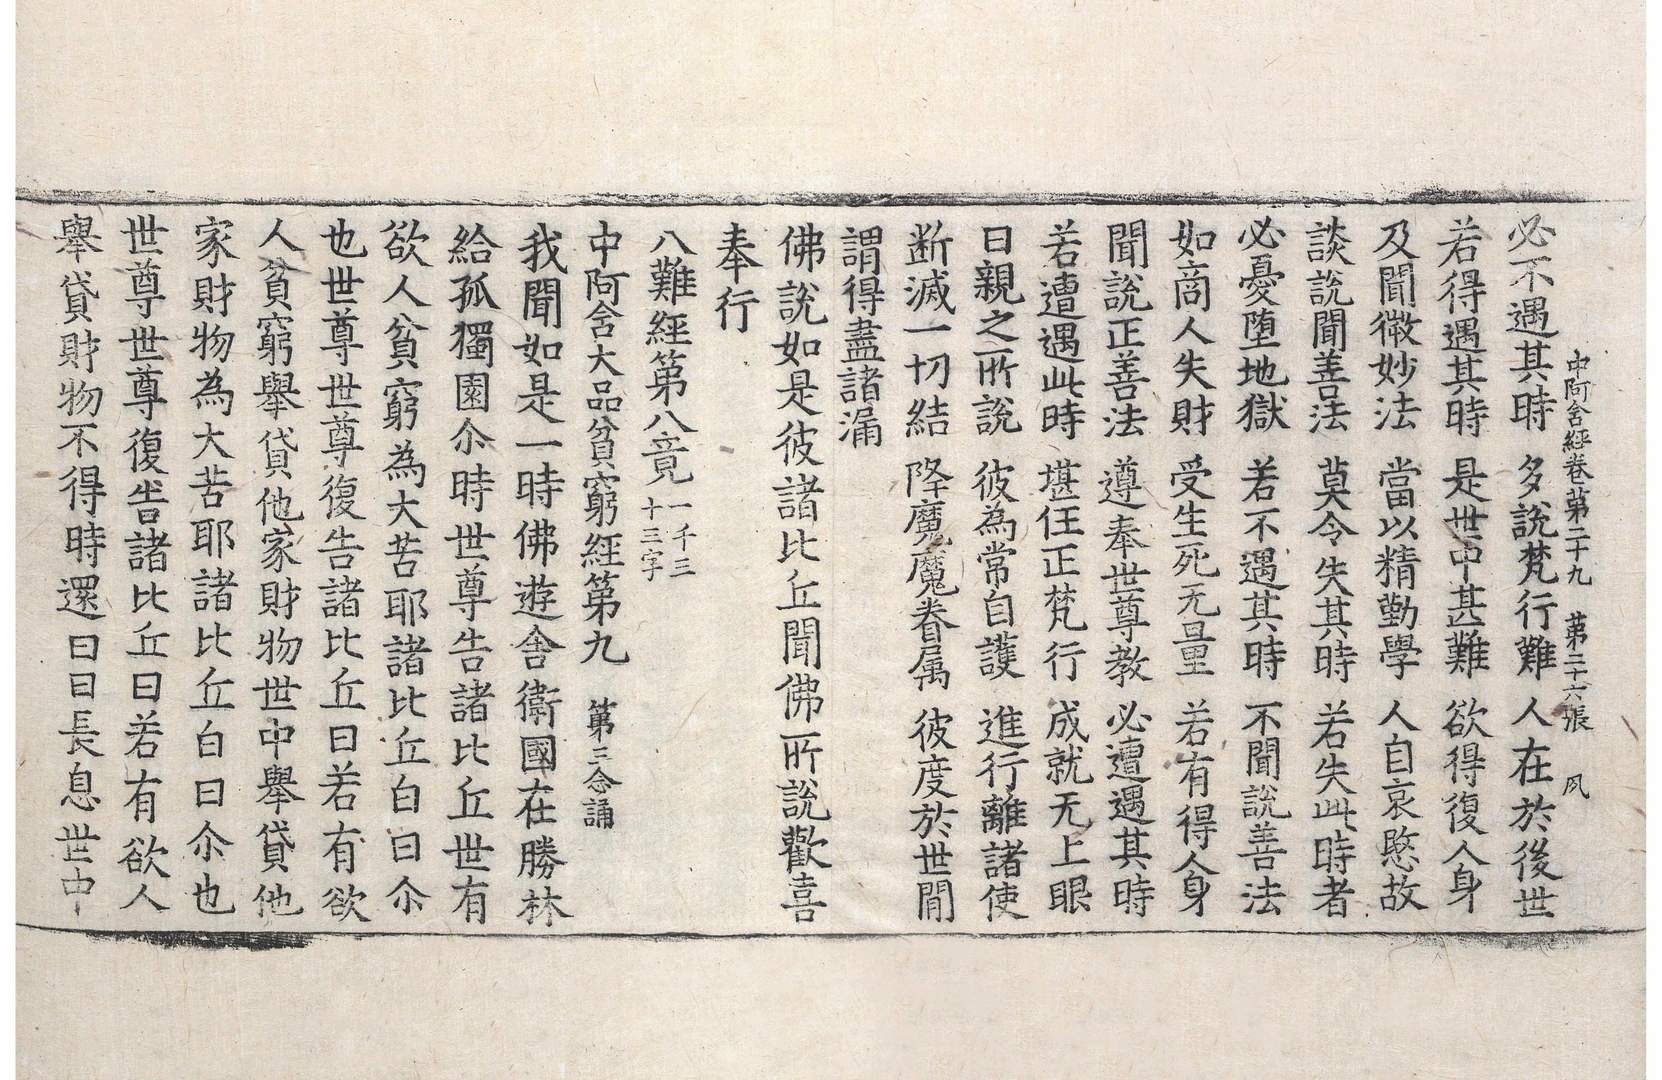 中阿含經卷第二十九 第二十六張 夙
必不遇其時 多說梵行難 人在於後世
若得遇其時 是世中甚難 欲得復人身
及聞微妙法 當以精勤學 人自哀愍故
談說聞善法 莫令失其時 若失此時者
必憂墮地獄 若不遇其時 不聞說善法
如商人失財 受生死无量 若有得人身
聞說正善法 遵奉世尊教 必遭遇其時
若遭遇此時 堪任正梵行 成就无上眼
日親之所說 彼為常自護 進行離諸使
断滅一切結 降魔魔眷属 彼度於世間
謂得盡諸漏
佛說如是彼諸比丘聞佛所說歡喜
奉行
八難經第八竟 一千三十三字
中阿含大品貧窮經第九 第三念誦
我聞如是一時佛遊舍衛國在勝林
給孤獨園尒時世尊告諸比丘世有
欲人貧窮為大苦耶諸比丘白曰尒
也世尊世尊復告諸比丘曰若有欲
人貧窮舉貸他家財物世中舉貸他
家財物為大苦耶諸比丘白曰尒也
世尊世尊復告諸比丘曰若有欲人
舉貸財物不得時還曰日長息世中